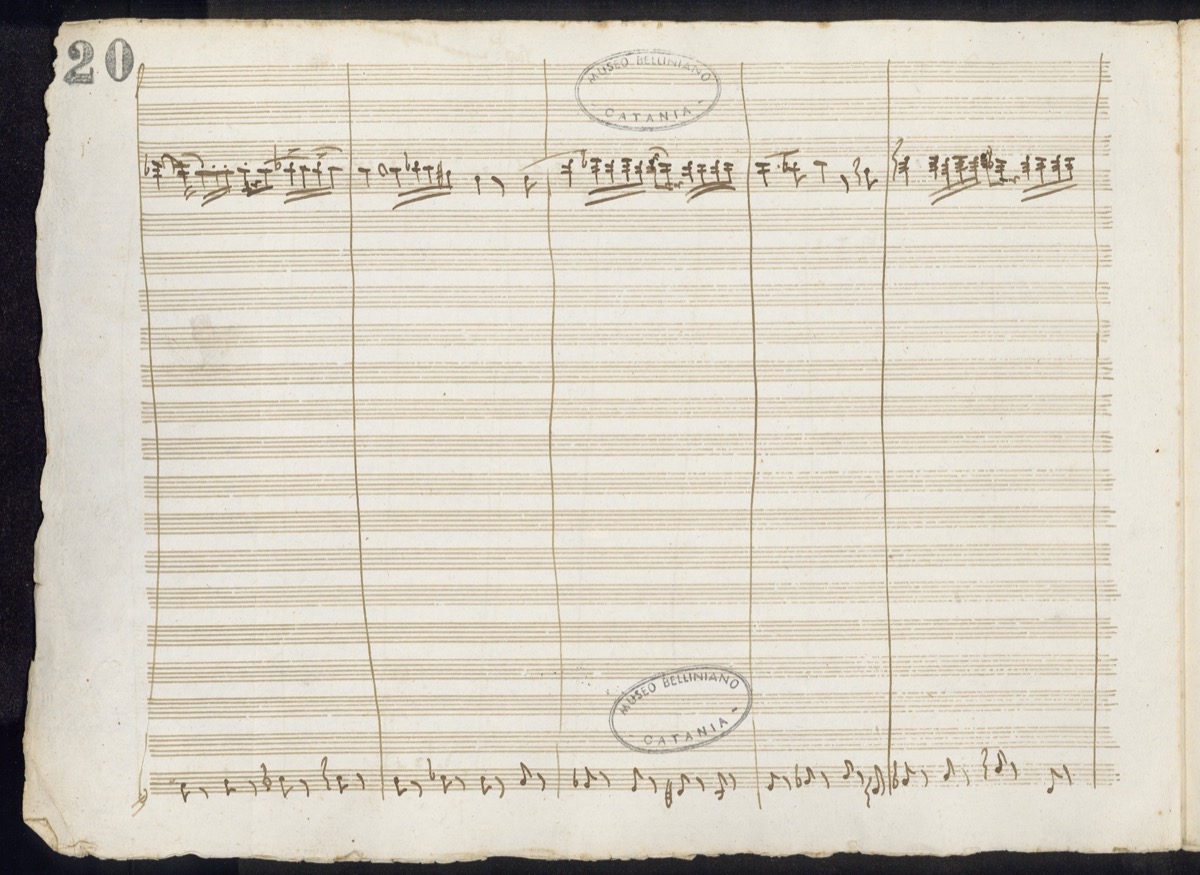 20
MUSEO BELLINIANO
- CATANIA -
MUSEO BELLINIANO
- CATANIA -